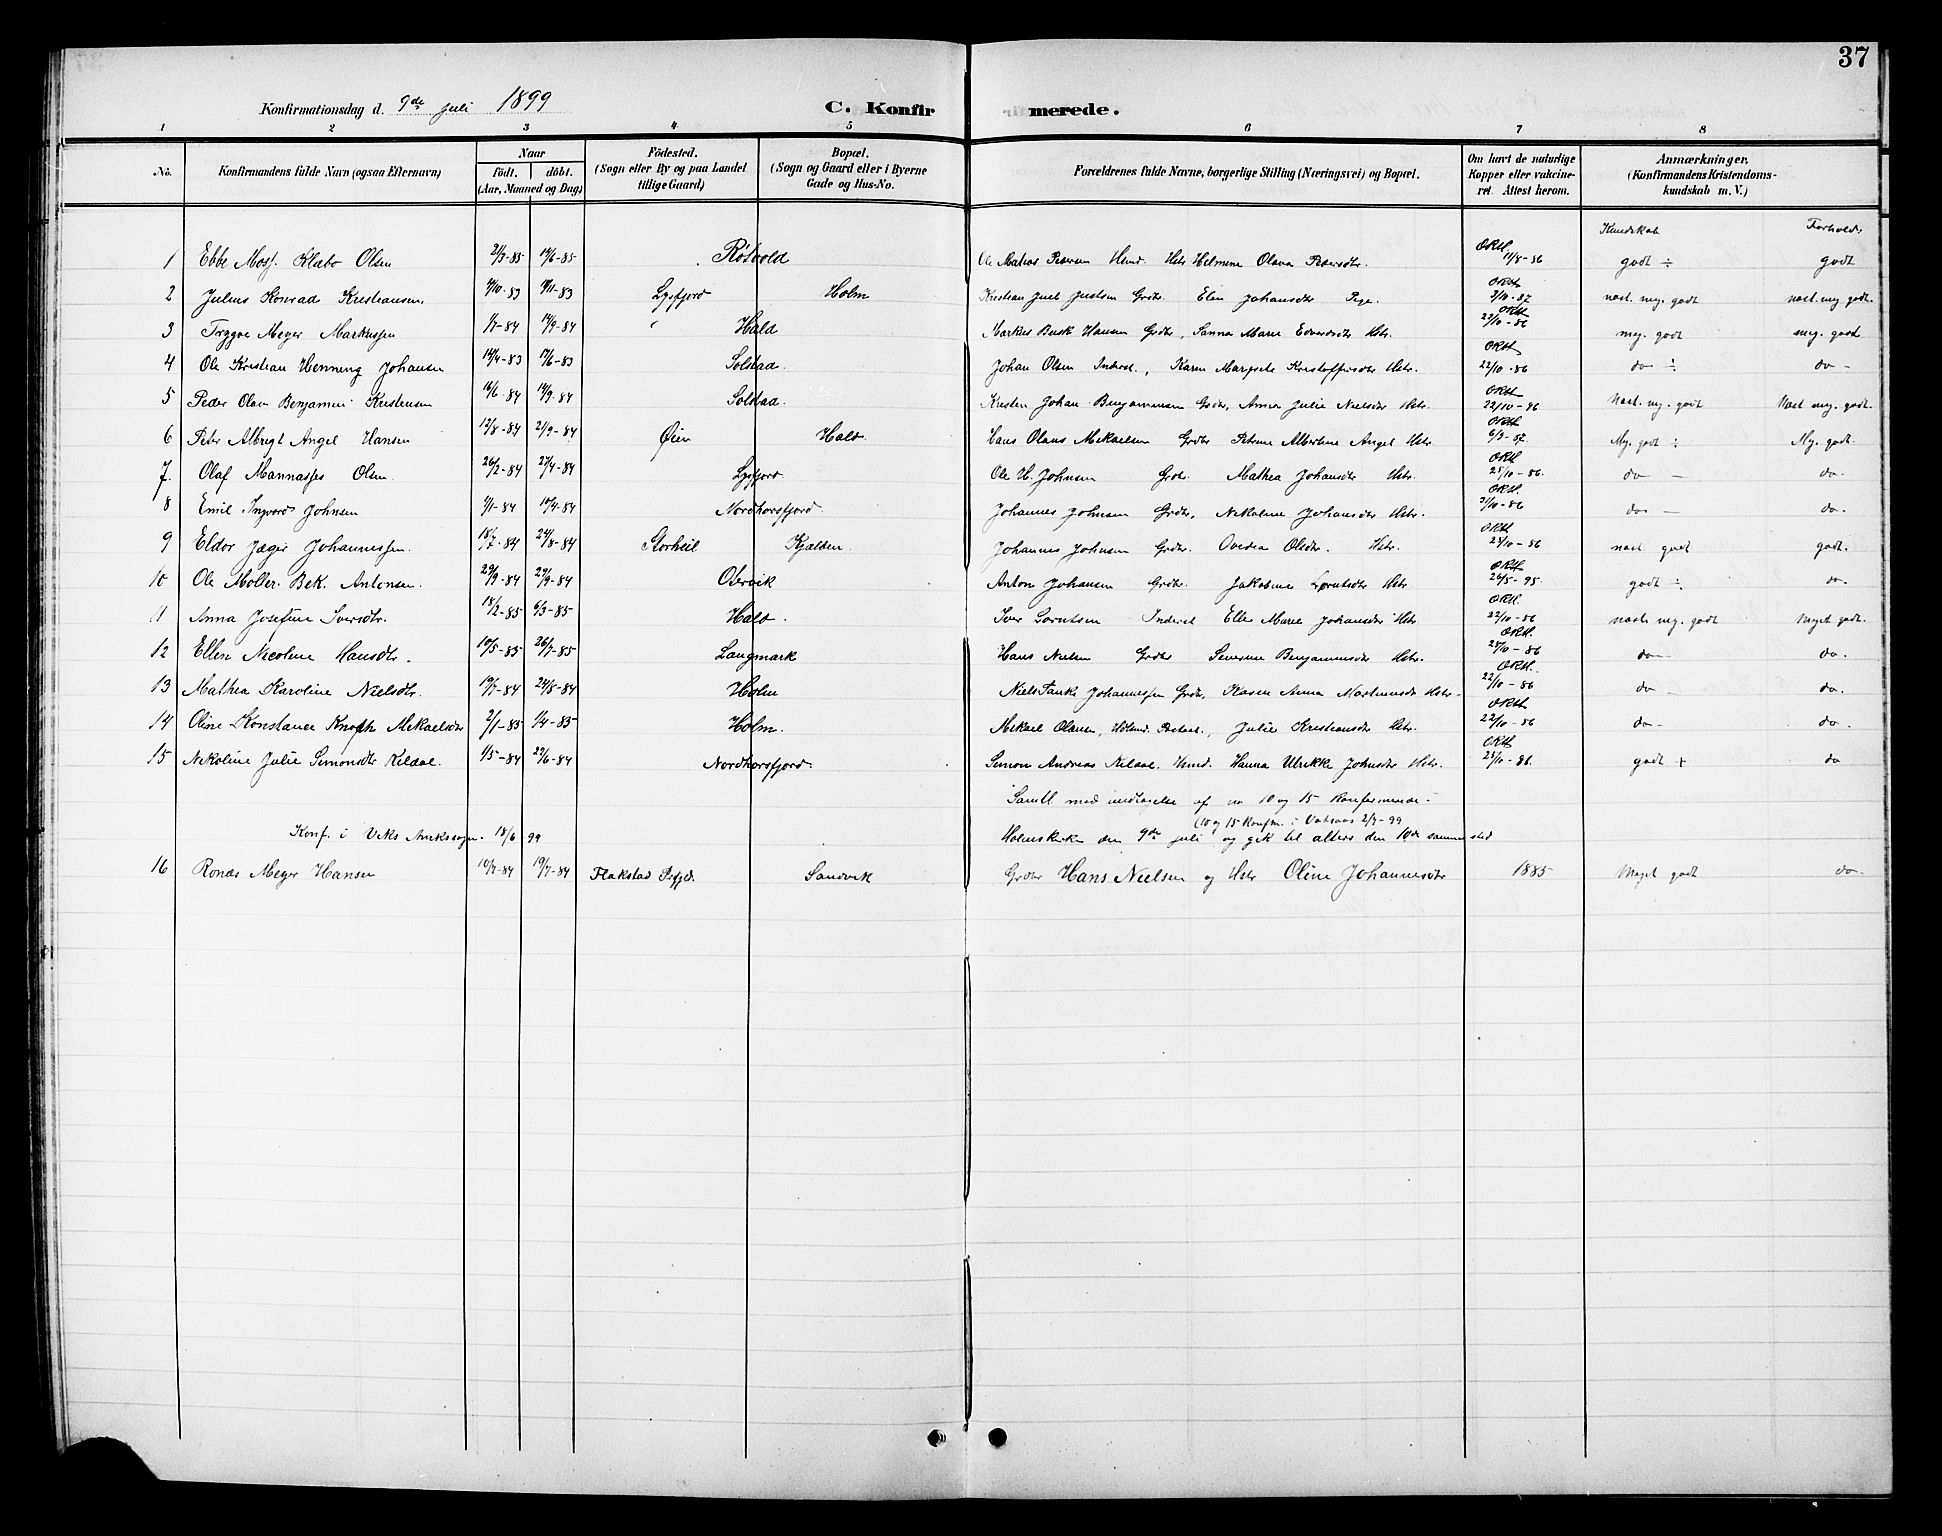 37
Konfirmationsdag d. 9de juli 1899 C. Konfir merede.
1 2 3 4 5 6 7 8
No. Konfirmandens fulde Navn (ogsaa Efternavn) Naar födt. döbt. (Aar, Maaned og Dag) Födested. (Sogn eller By og paa Landet tillige Gaard) Bopæl. (Sogn og Gaard eller i Byerne Gade og Hus-No. Forældrenes fulde Navne, borgerlige Stilling (Næringsvei) og Bopæl. Om havt de naturlige Kopper eller vakcineret. Attest herom. Anmærkninger. (Konfirmandens Kristendomskundskab m. V.)
Kundskab Forhold
1 Ebbe Mosf. Klæbo Olsen 2/3-85 14/6-85 Røtvold Ole Mathias Petersen Hmd. Hstr Helmine Olava Pedersdtr. 11/8-86 godt ÷ godt
2 Julius Konrad Kristiansen 4/10-83 4/11-83 Lysfjord Holm Kristian Juel Justsen Grdbr. Elen Johansdtr Pige. 2/10-87 næst. mg. godt næst. mg godt.
3 Trygve Meyer Markussen 1/7-84 14/9-84 " Hald Markus Busk Hansen Grdbr, Sanna Marie Edvardsdtr Hstr. 22/10-86 meg. godt meg. godt
4 Ole Kristian Henning Johansen 14/4-83 17/6-83 Solstad. Johan Olsen Inderst., Karen Margrete Kristoffersdtr Hstr. 22/10-86 do ÷ do -
5 Peder Olav Benjamin Kristensen 16/6-84 14/9-84 Solstad. Kristen Johan Benjaminsen Grdbr, Anna Julie Nielsdtr Hstr. 22/10-86 Næst. mg. godt Næst mg. godt.
6 Peter Albregt Angel Hansen 12/8-84 21/9-84 Øien Hald Hans Olaus Mekaelsen Grdbr Petrine Albertine Angel Hstr. 6/3-87 Mg. godt ÷ Mg. godt.
7. Olaf Mannasses Olsen 26/2-84 27/4-84 Lysfjord Ole H. Johnsen Grdbr. Mathea Johansdtr Hstr. 25/10-86. do - do.
8 Emil Ingvard Johnsen 4/1-84 14/4-84 Nordhorsfjord Johannes Johnsen Grdbr, Nikoline Johansdtr Hstr. 21/10-86 do - do.
9 Eldor Jæger Johannessen. 18/7-84 24/8-84 Storheil Kjælden. Johannes Johnsen Grdbr. Ovedia Olsdtr. Hstr. 24/10-86 næst godt godt.
10 Ole Møller. Bek. Antonsen. 29/9-84 Otervik Anton Johansen Grdbr. Jakobine Lorntsdtr Hstr 26/5-95. godt ÷ do
11 Anna Josefine Iversdtr. 18/2-85 6/3-85 Hald. Iver Lorntsen Inderst Ellen Marie Johansdtr Hstr 22/10-86 næst. mg. godt Meget godt.
12 Ellen Nicoline Hansdtr. 10/5-85 26/7-85 Langmark Hans Nielsen Grdbr Severine Benjaminsdtr Hstr. 25/10-86 do do.
13 Mathea Karoline Nielsdtr. 19/7-84 24/8-84 Holm Niels Tanke Johannessen Grdbr, Karen Anna Martinusdtr Hstr. 22/10-86 do do.
14 Oline Konstance Knoph Mekaelsdtr 2/1-85 1/4-85 Holm. Mekael Olausen, Julie Kristiansdtr Hstr. 22/10-86 do - do.
15 Nikoline Julie Simonsdtr Kildal. 1/5-84 29/6-84 Nordhorsfjord. Simon Andreas Kildal. Hmd. Hanna Ulrikke Johnsdtr Hstr. 25/10-86. godt + do
Samtl med undtagelse af no 10 og 15 konfirmerede i
(10 og 15 konfm. i Vatsaas 2/7-99
Konf. i Viks Anekssogn. 18/6 99 Holmskirke den 9de juli og gik til alters den 10de samme sted
16 Ronas Meyer Hansen 10/7-84 19/7-84 Flakstad Prgjld. Sandvik Grdbr Hans Nielsen og Hstr Oline Johannesdtr 1885 Meget godt do.